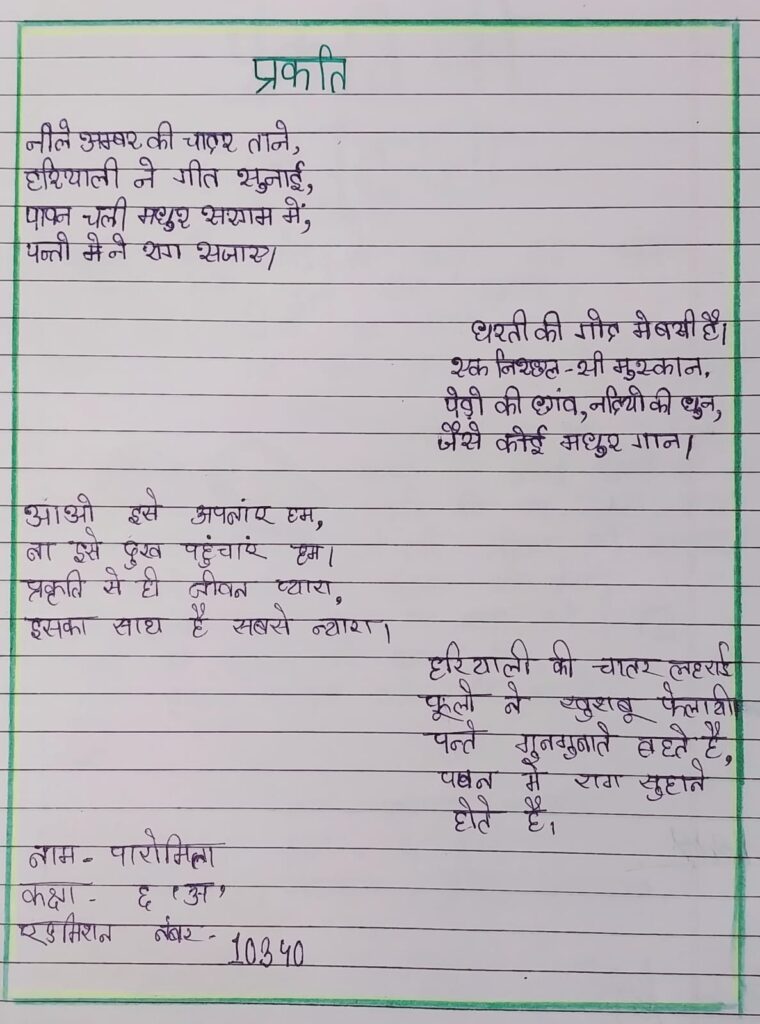 प्रकति
नीले अम्बर की चादर ताने,
हरियाली ने गीत सुनाई,
पावन चली मधुर सरगम में,
पन्तो मे ने राग सजाए।
धरती की गोद मे बसी है।
एक निश्छल-सी मुस्कान,
पेड़ो की छांव, नदियो की धुन,
जैसे कोई मधुर गान।
आओ इसे अपनांए हम,
ना इसे दुख पहुंचांए हम।
प्रकृति से ही जीवन प्यारा,
इसका साथ है सबसे न्यारा।
हरियाली की चातर लहराई
फूलो ने खुशबू फेलायी
पन्ते गुनगुनाते बहते है,
पबन मे राग सुहाने
होते है।
नाम- पारोमिता
कक्षा - ६ 'अ'
एडमिशन नंबर- 10340